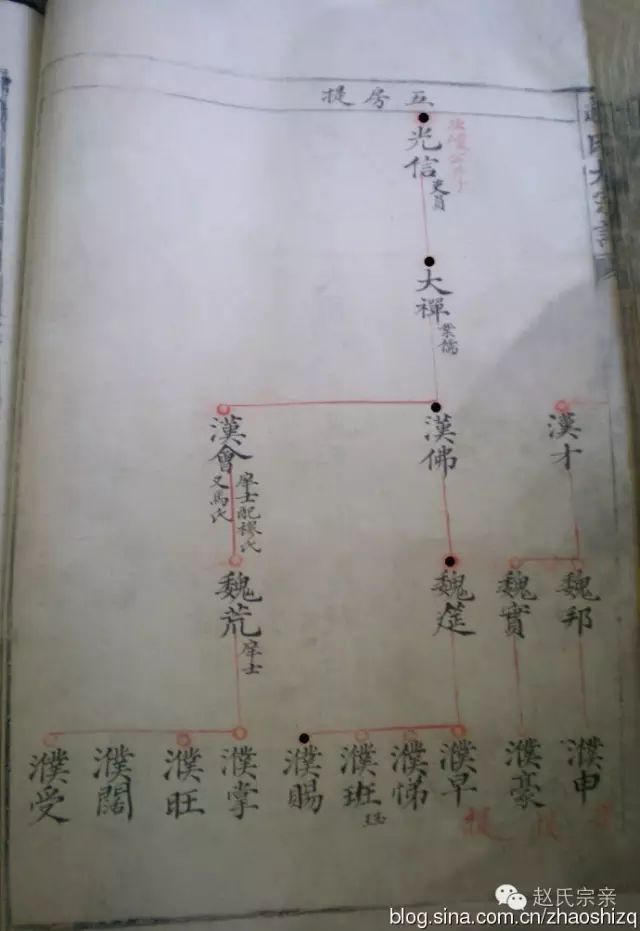 五房提
光信
吏員
大禪
業儒
漢才
漢佛
漢會
庠士配穆氏
又馬氏
魏邦
魏實
魏筵
魏荒
庠士
濮申
濮豪
濮早
濮悌
濮班
濮賜
濮掌
濮旺
濮闊
濮受
提
赵氏宗亲
blog.sina.com.cn/zhaoshizq